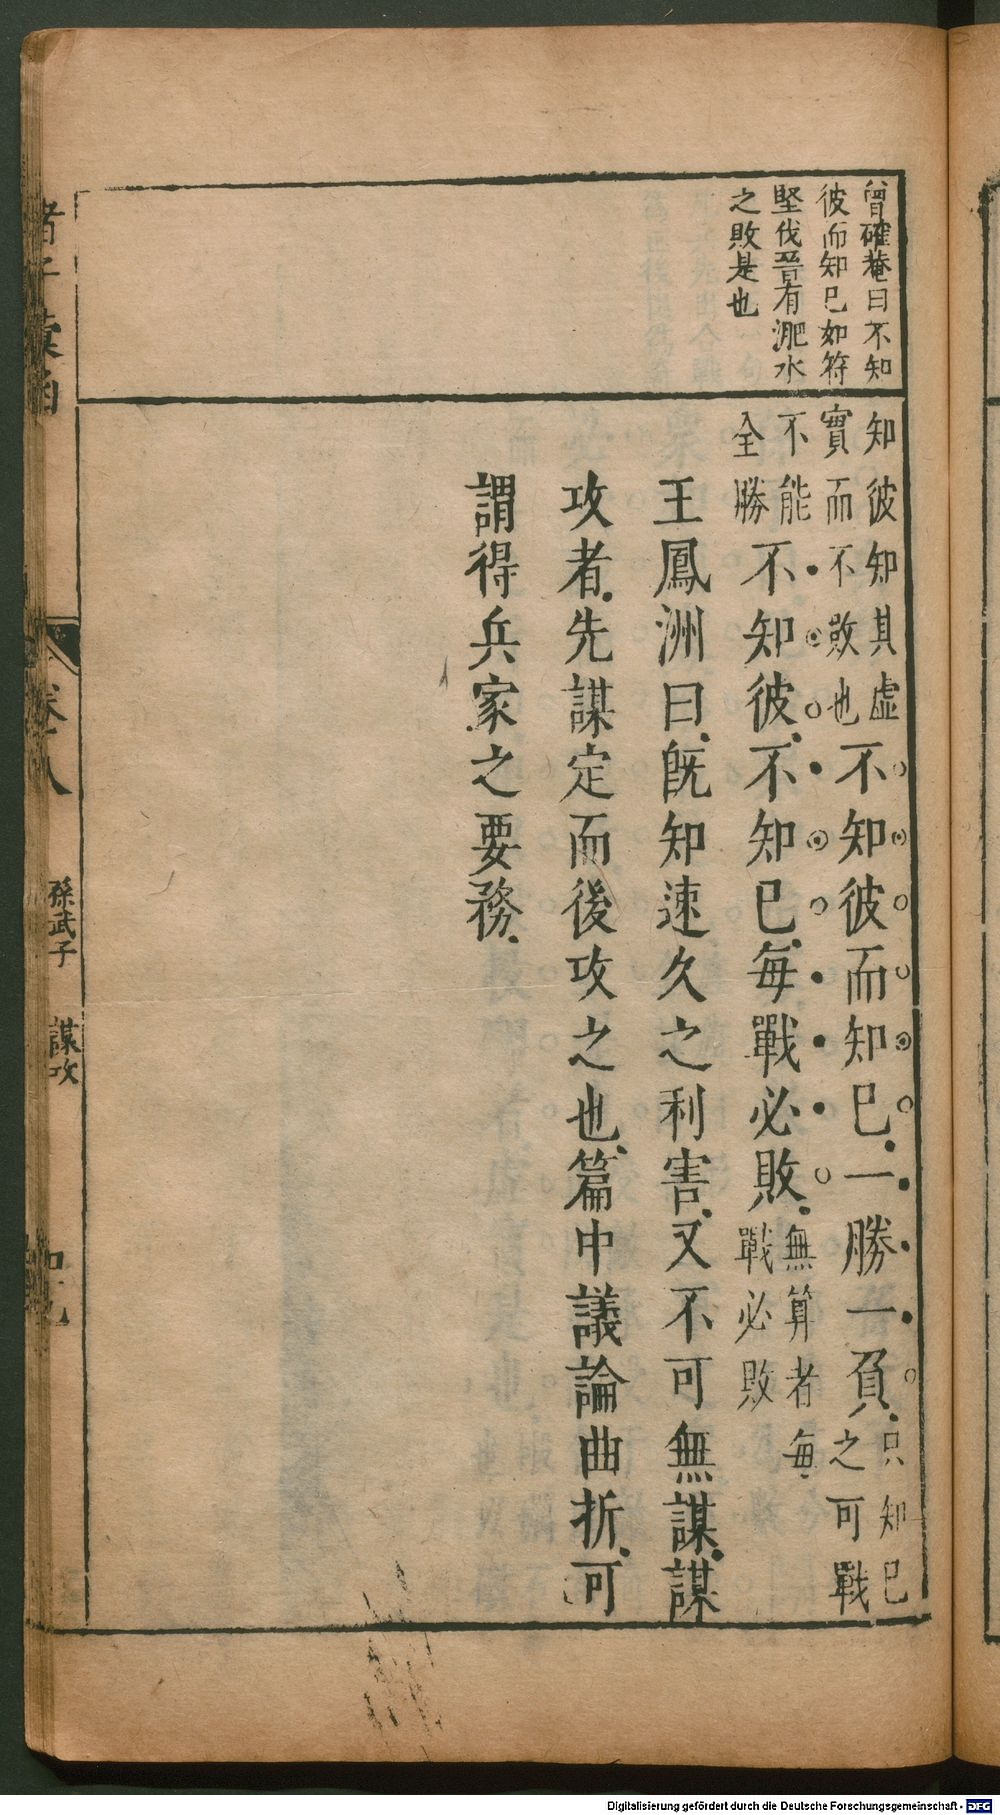 曾確菴曰不知
彼而知已如符
堅伐晉有淝水
之敗是也
知彼知其虛
實而不敗也
不知彼而知已一勝一負
只知已
之可戰
不能
全勝
不知彼不知已每戰必敗
無算者每
戰必敗
王鳳洲曰旣知速久之利害又不可無謀謀
攻者先謀定而後攻之也篇中議論曲折可
謂得兵家之要務
諸子彙函
卷八
孫武子
謀攻
四十九
Digitalisierung gefördert durch die Deutsche Forschungsgemeinschaft - DFG